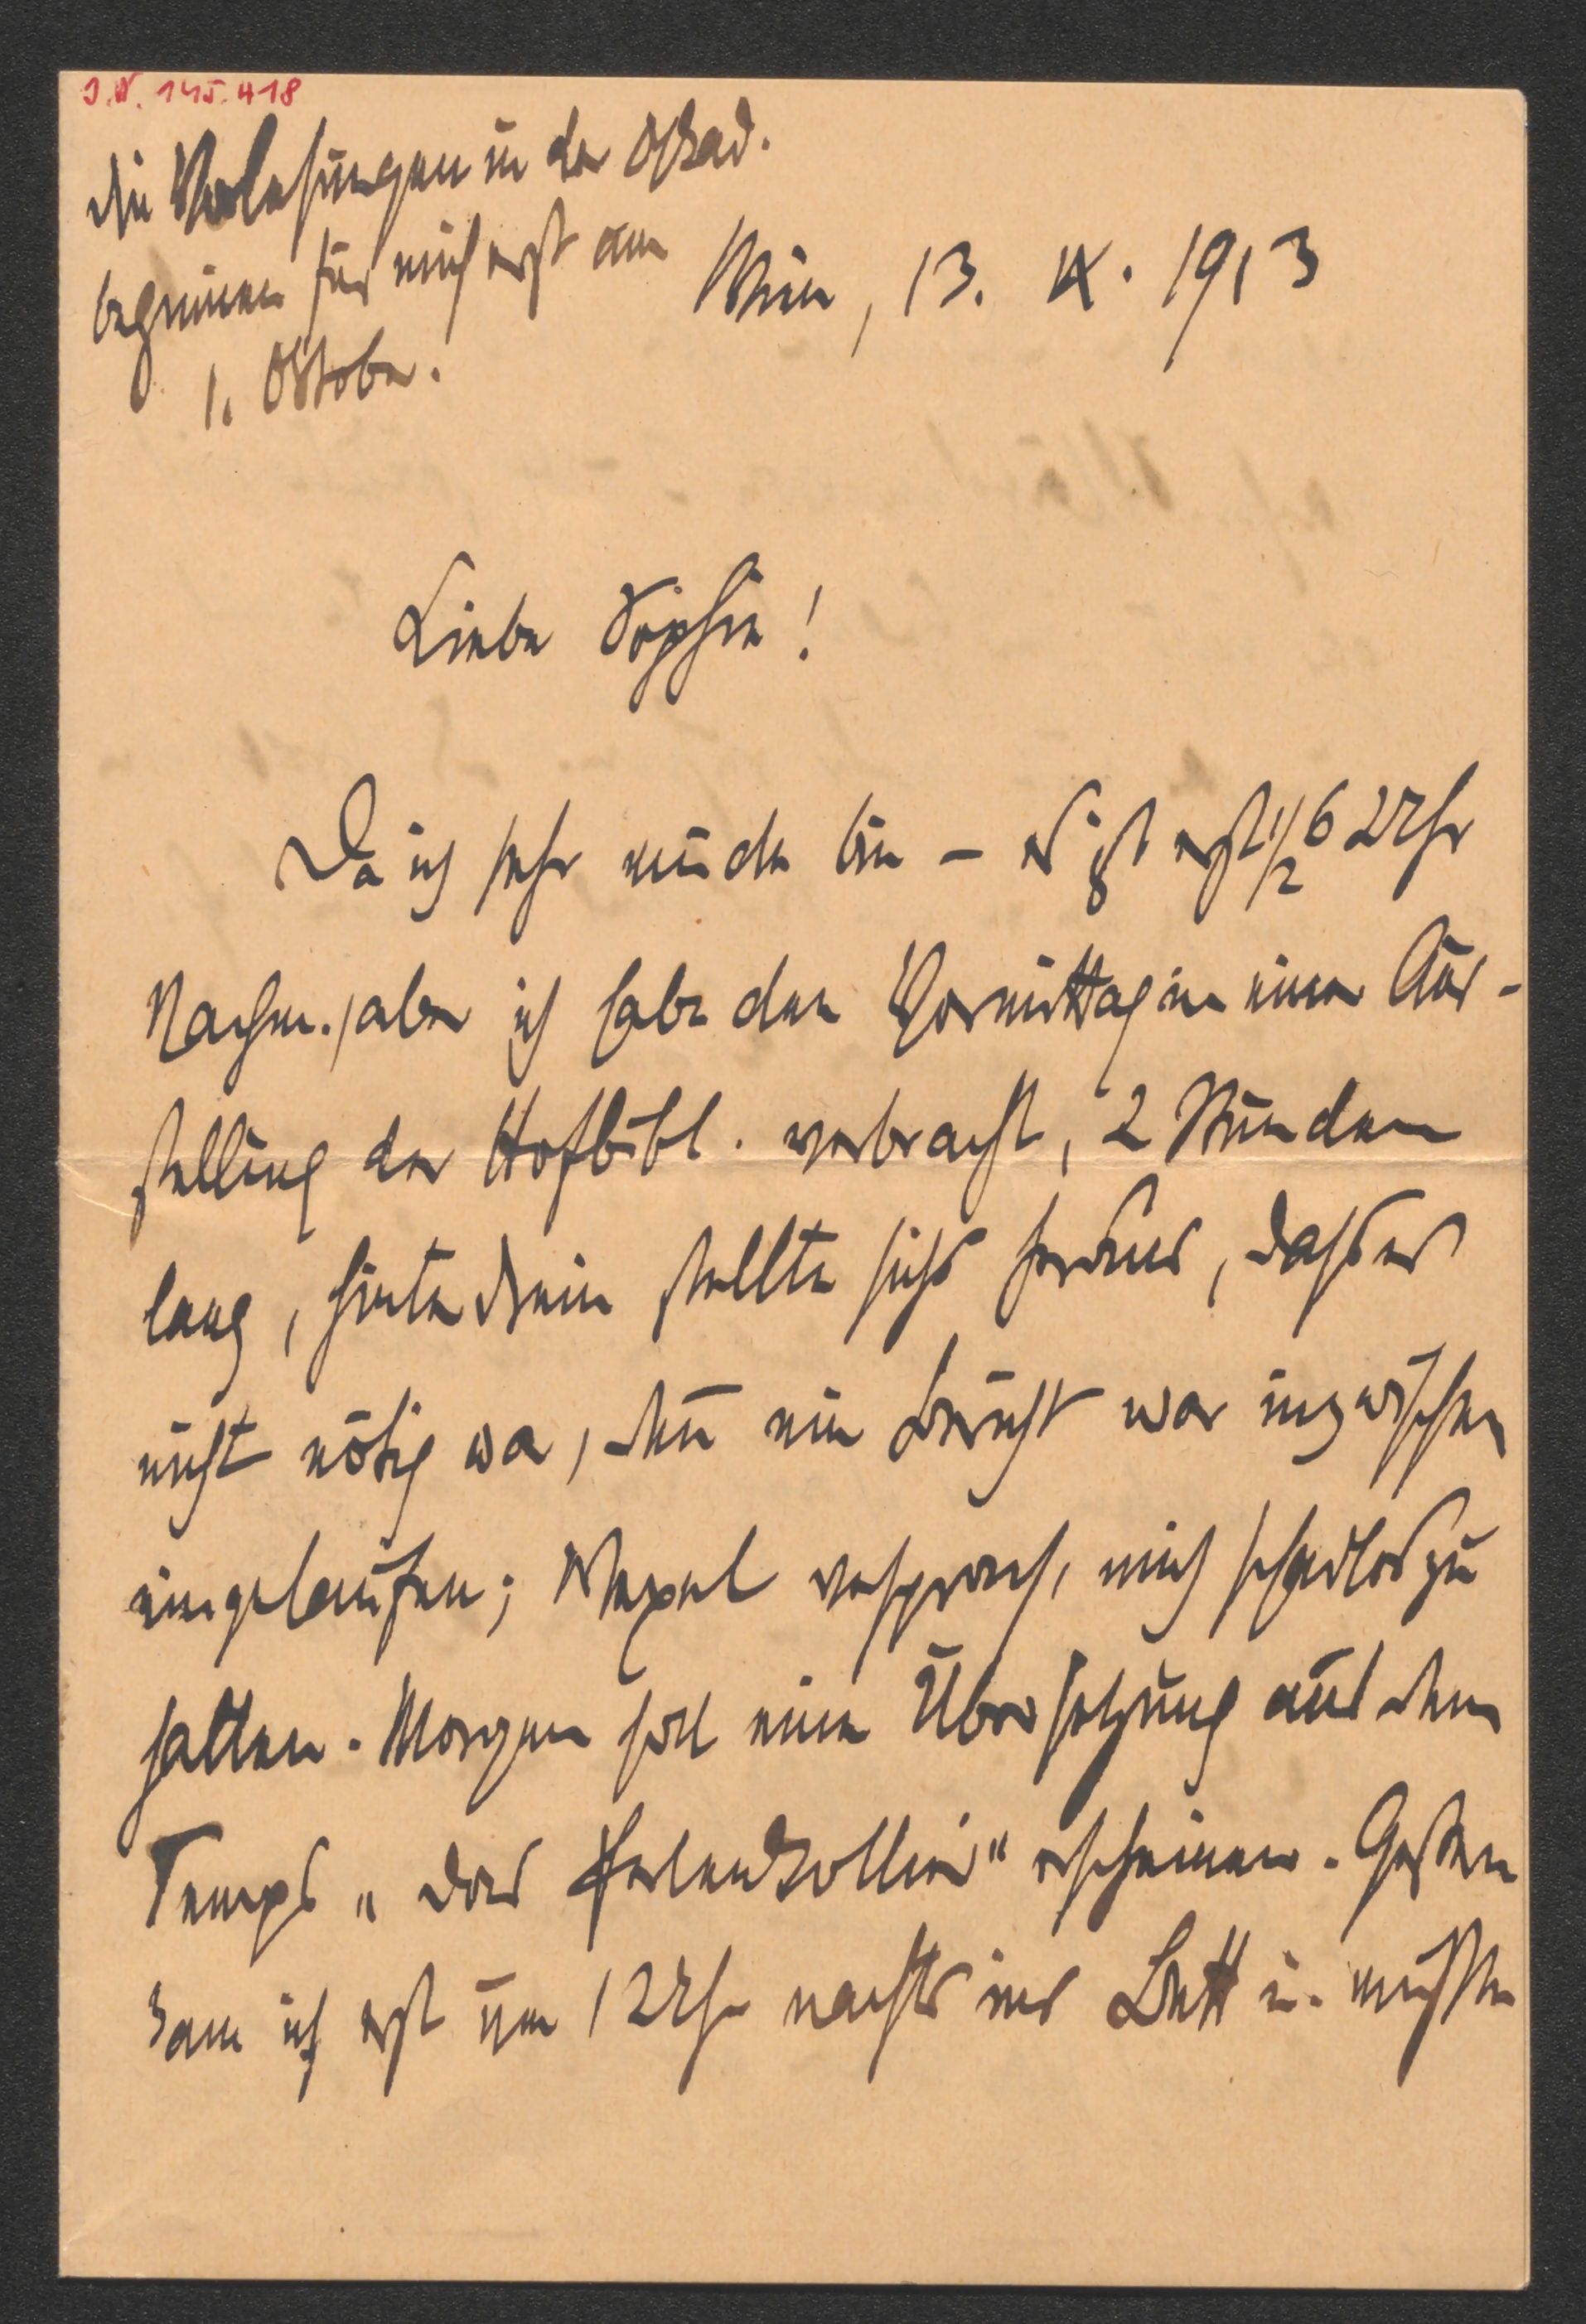 J.N. 145.418
Die Vorlesungen in der Akad.
beginnen für mich erst am
1. Oktober.
Wien, 13. IX. 1913
Liebe Sophie!
Da ich sehr müde bin – es ist erst 1/2 6 Uhr
Nachm., aber ich habe den Vormittag in einer Aus-
stellung der Hofbibl. verbracht, 2 Stunden
lang, hinterdrein stellte sichs heraus, dass es
nicht nötig war, denn ein Bericht war inzwischen
eingelaufen; versprach, mich schadlos zu
halten. Morgen soll eine Übersetzung aus dem
Temps „Das Perlenkollier“ erscheinen. Gestern
kam ich erst um 12 Uhr nachts ins Bett u. musste